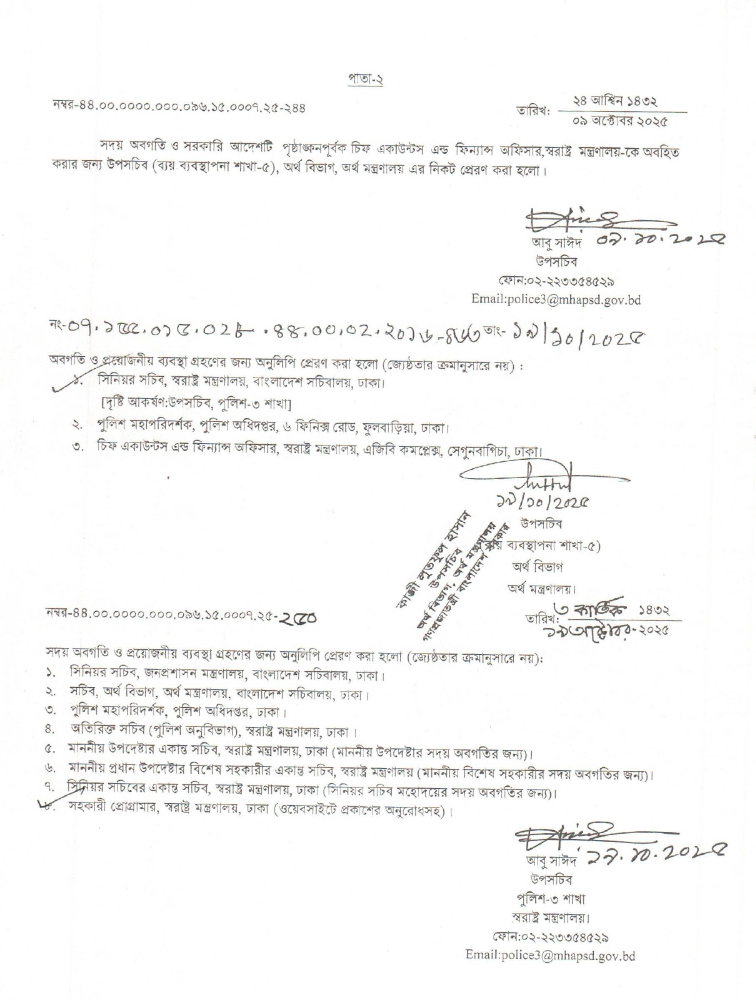 পাতা-২
নম্বর-৪৪.০০.০০০০.০০০.০৯৬.১৫.০০০৭.২৫-২৪৪
তারিখ: ২৪ আশ্বিন ১৪৩২
০৯ অক্টোবর ২০২৫
সদয় অবগতি ও সরকারি আদেশটি পৃষ্ঠাঙ্কনপূর্বক চিফ একাউন্টস এন্ড ফিন্যান্স অফিসার,স্বরাষ্ট্র মন্ত্রণালয়-কে অবহিত
করার জন্য উপসচিব (ব্যয় ব্যবস্থাপনা শাখা-৫), অর্থ বিভাগ, অর্থ মন্ত্রণালয় এর নিকট প্রেরণ করা হলো।
আবু সাঈদ ০৯.১০.২০২৫
উপসচিব
ফোন:০২-২২৩৩৫৪৫২৯
Email:police3@mhapsd.gov.bd
নং-০৭.১৫৫.০১৫.০২৮.৪৪.০০.০২.২০১৬- তাং- ১৯/১০/২০২৫
অবগতি ও প্রয়োজনীয় ব্যবস্থা গ্রহণের জন্য অনুলিপি প্রেরণ করা হলো (জ্যেষ্ঠতার ক্রমানুসারে নয়) :
১. সিনিয়র সচিব, স্বরাষ্ট্র মন্ত্রণালয়, বাংলাদেশ সচিবালয়, ঢাকা।
[দৃষ্টি আকর্ষণ:উপসচিব, পুলিশ-৩ শাখা]
২. পুলিশ মহাপরিদর্শক, পুলিশ অধিদপ্তর, ৬ ফিনিক্স রোড, ফুলবাড়িয়া, ঢাকা।
৩. চিফ একাউন্টস এন্ড ফিন্যান্স অফিসার, স্বরাষ্ট্র মন্ত্রণালয়, এজিবি কমপ্লেক্স, সেগুনবাগিচা, ঢাকা।
১৯/১০/২০২৫
উপসচিব
(ব্যয় ব্যবস্থাপনা শাখা-৫)
অর্থ বিভাগ
অর্থ মন্ত্রণালয়।
কাজী লুতফুল হাসান
উপসচিব
অর্থ বিভাগ, অর্থ মন্ত্রণালয়
গণপ্রজাতন্ত্রী বাংলাদেশ সরকার
নম্বর-৪৪.০০.০০০০.০০০.০৯৬.১৫.০০০৭.২৫-২৫০
তারিখ: ৩ কার্তিক ১৪৩২
১৯ অক্টোবর-২০২৫
সদয় অবগতি ও প্রয়োজনীয় ব্যবস্থা গ্রহণের জন্য অনুলিপি প্রেরণ করা হলো (জ্যেষ্ঠতার ক্রমানুসারে নয়):
১. সিনিয়র সচিব, জনপ্রশাসন মন্ত্রণালয়, বাংলাদেশ সচিবালয়, ঢাকা।
২. সচিব, অর্থ বিভাগ, অর্থ মন্ত্রণালয়, বাংলাদেশ সচিবালয়, ঢাকা।
৩. পুলিশ মহাপরিদর্শক, পুলিশ অধিদপ্তর, ঢাকা।
৪. অতিরিক্ত সচিব (পুলিশ অনুবিভাগ), স্বরাষ্ট্র মন্ত্রণালয়, ঢাকা।
৫. মাননীয় উপদেষ্টার একান্ত সচিব, স্বরাষ্ট্র মন্ত্রণালয়, ঢাকা (মাননীয় উপদেষ্টার সদয় অবগতির জন্য)।
৬. মাননীয় প্রধান উপদেষ্টার বিশেষ সহকারীর একান্ত সচিব, স্বরাষ্ট্র মন্ত্রণালয় (মাননীয় বিশেষ সহকারীর সদয় অবগতির জন্য)।
৭. সিনিয়র সচিবের একান্ত সচিব, স্বরাষ্ট্র মন্ত্রণালয়, ঢাকা (সিনিয়র সচিব মহোদয়ের সদয় অবগতির জন্য)।
৮. সহকারী প্রোগ্রামার, স্বরাষ্ট্র মন্ত্রণালয়, ঢাকা (ওয়েবসাইটে প্রকাশের অনুরোধসহ)।
আবু সাঈদ ১৯.১০.২০২৫
উপসচিব
পুলিশ-৩ শাখা
স্বরাষ্ট্র মন্ত্রণালয়।
ফোন:০২-২২৩৩৫৪৫২৯
Email:police3@mhapsd.gov.bd